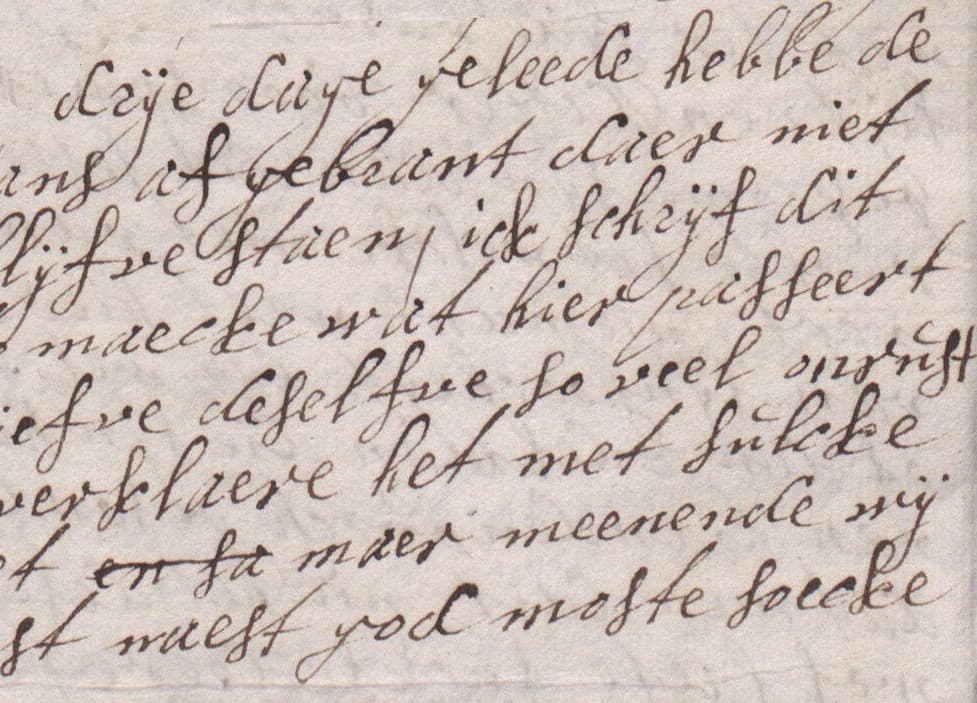 drÿe dage geleede hebbe de
ans af gebrant daer niet
lÿfve staen, ick schrÿf dit
maecke wat hier passeert
iefve deselfve so veel onrust
verklaere het met sulcke
et en sa maer meenende wÿ
st naest god moste soecke